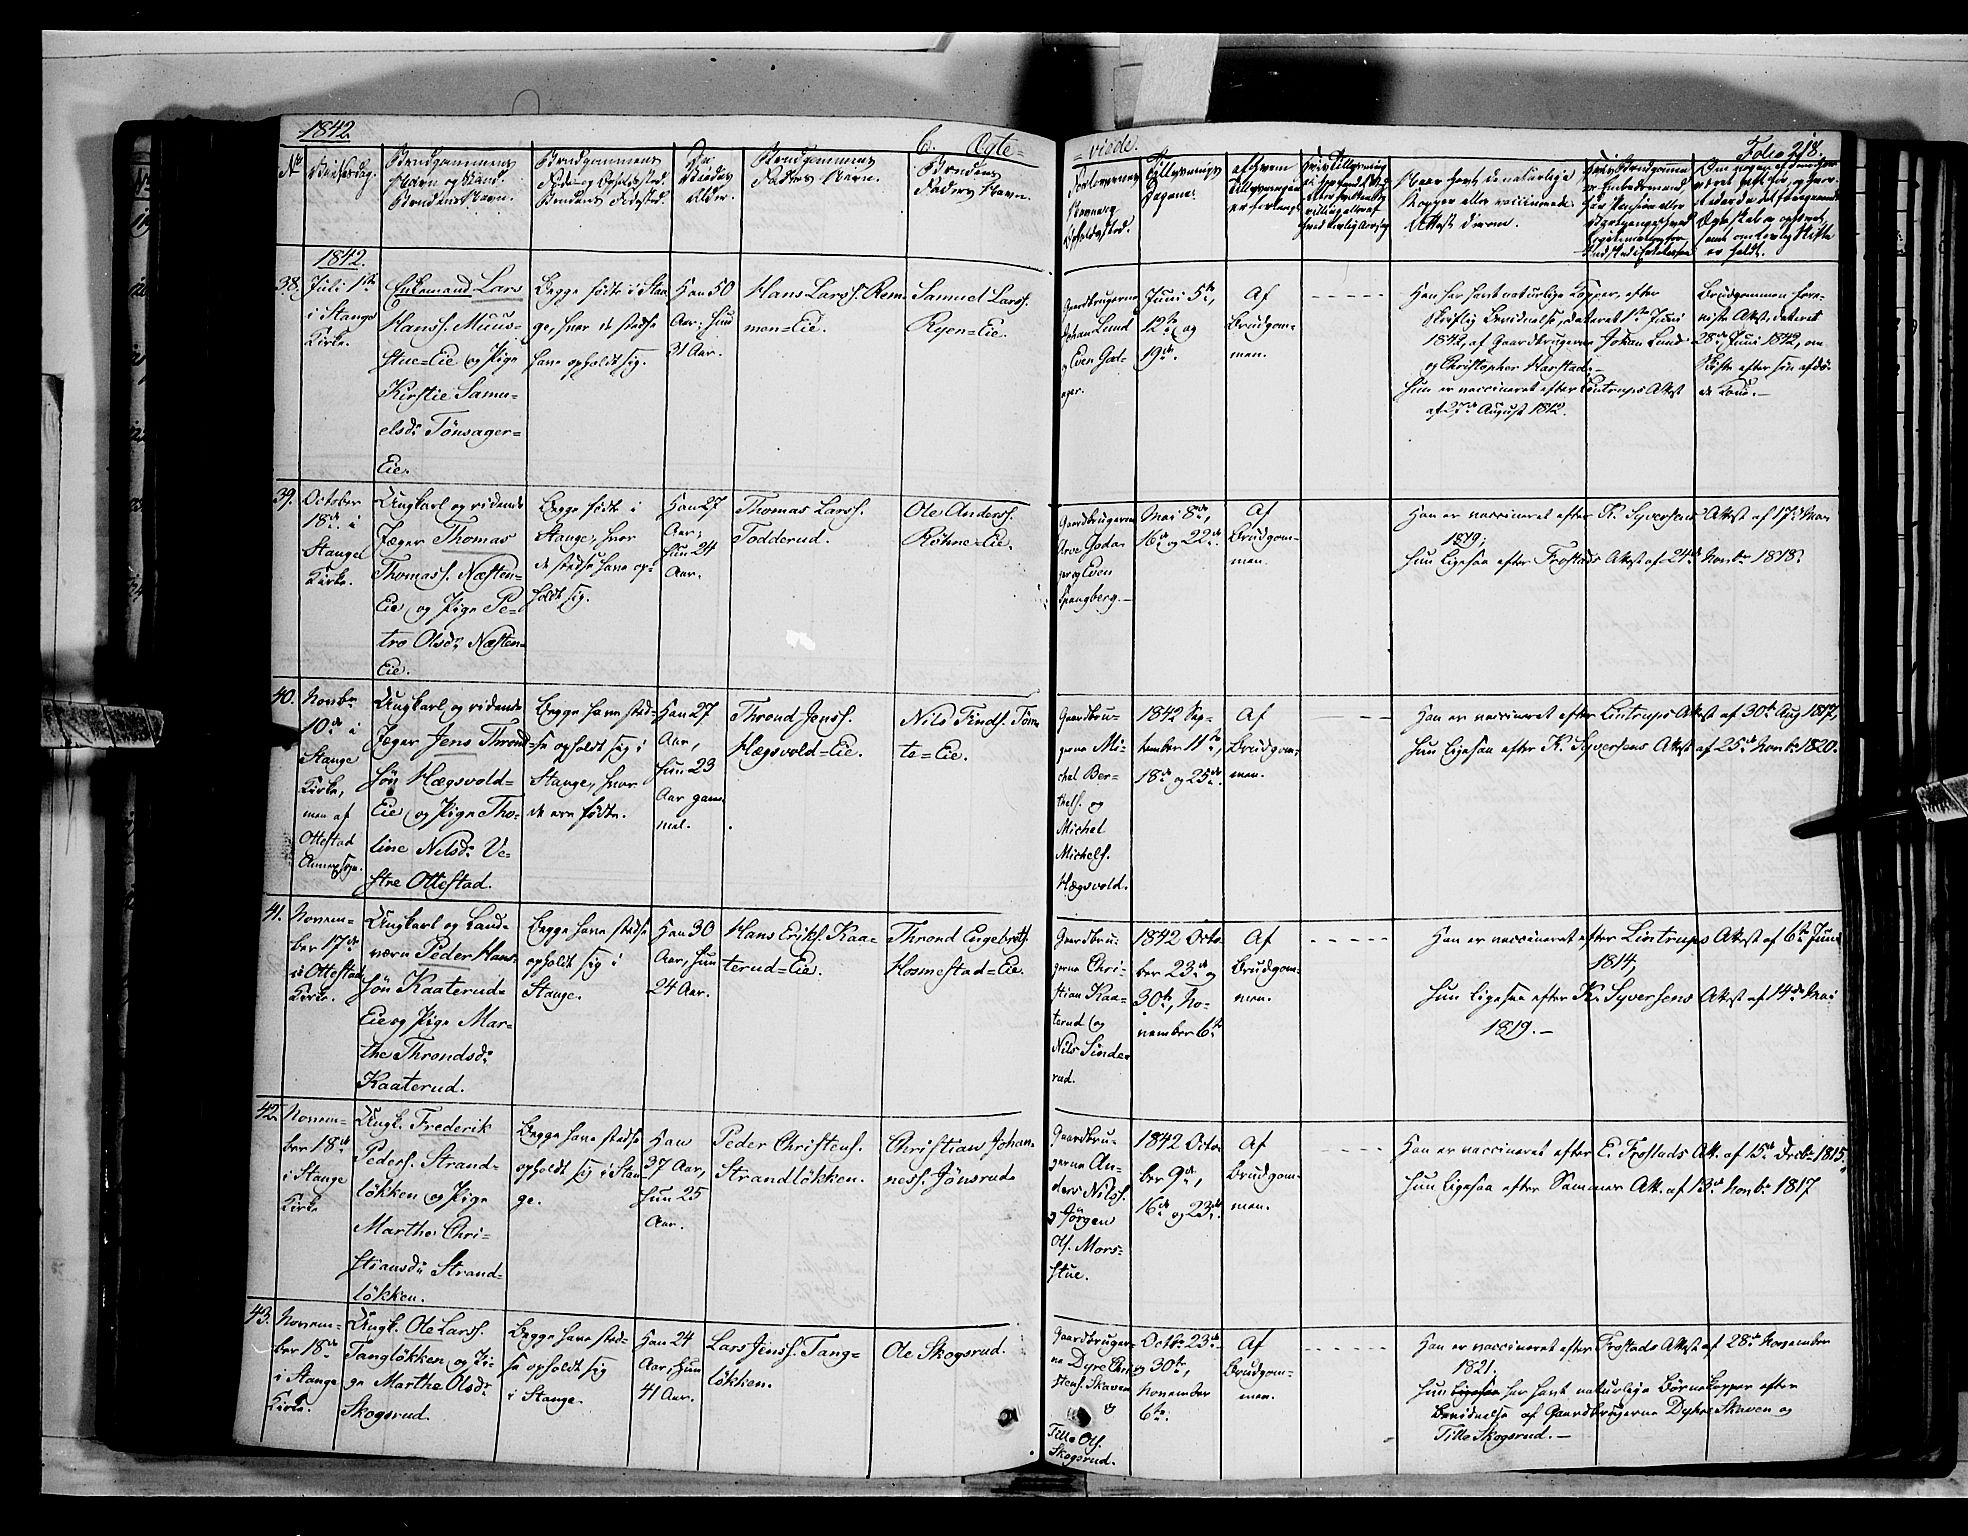 1842.
C. Ægte=
= viede.
Folio 218.
No
Vielsesdag.
Brudgommens
Navn og Stand.
Brudens Navn.
Brudgommens
Føde og Opholdssted.
Brudens Fødested.
De
Viedes
Alder.
Brudgommens
Faders Navn.
Brudens
Faders Navn.
Forlovernes
Navne og
Opholdssted.
Tillysnings
Dagene.
af hvem
Tillysningen
er forlangt.
Naar havt de naturlige
Kopper eller vaccinerede.
Attest derom.
1842.
38.
Juli 1ste
i Stange
Kirke.
Enkemand Lars
Hanss. Muus-
stue=Eie og Pige
Kirstie Samu-
elsdr Tønsager-
Eie.
Begge fødte i Stan
ge, hvor de stedse
have opholdt sig.
Han 50
Aar, hun
31 Aar.
Hans Larss. Rem
men=Eie.
Samuel Larss.
Ryen=Eie.
Gaardbrugerne
Johan Lund
og Even Gat-
ager.
Juni 5te,
12te og
19de.
Af
Brudgom-
men.
Han har havt naturlige Kopper, efter
skriftlig Bevidnelse, dateret 1ste Juni
1842, af Gaardbrugerne Johan Lund
og Christopher Harstad.
Hun er vaccineret efter Lintrups Attest
af 27de August 1812.
Brudgommen fore-
viste Attest, dateret
28de Juni 1842, om
Skifte efter sin afdø-
de Kone.
39.
October
18de i
Stange
Kirke.
Ungkarl og ridende
Jæger Thomas
Thomass. Næsten-
Eie, og Pige Pe=
tro Olsdr Næsten-
Eie.
Begge fødte i
Stange, hvor
de stedse have op-
holdt sig.
Han 27
Aar,
hun 24
Aar.
Thomas Larss.
Todderud.
Ole Anderss.
Røhne=Eie.
Gaardbrugerne
Arve Goda-
ger og Even
Spangberg.
Mai 8de,
16de og 22de.
Af
Brudgom-
men.
Han er vaccineret efter K. Syversens Attest af 17de Mai
1819;
Hun ligesaa efter Frostads Attest af 24de Novbr 1818.
40.
Novbr
10de i
Stange
Kirke,
men af
Ottestad
Annexsogn.
Ungkarl og ridende
Jæger Jens Thrond
søn Hægsvold-
Eie og Pige Tho-
line Nilsdr Ve-
stre Ottestad.
Begge have sted-
se opholdt sig i
Stange, hvor
de ere fødte.
Han 27
Aar,
Hun 23
Aar gam-
mel.
Thrond Jenss.
Hægsvold=Eie.
Nils Finds. Tom
te=Eie.
Gaardbru-
gerne Mi-
chel Ber-
thels. og
Michel
Michels.
Hægsvold.
1842 Sep-
tember 11te,
18de og 25de.
Af
Brudgom-
men.
Han er vaccineret efter Lintrups Attest af 30te Aug 1817,
Hun ligesaa efter K. Syversens Attest af 25de Novbr 1820.
41.
Novem-
ber 17de
i Ottestad
Kirke.
Ungkarl og Land-
værn Peder Hans-
søn Kaaterud-
Eie og Pige Mar-
the Throndsdr
Kaaterud.
Begge have stedse
opholdt sig i
Stange.
Han 30
Aar, hun
24 Aar.
Hans Eriks. Kaa-
terud=Eie.
Thrond Engebreths.
Hosmestad=Eie.
Gaardbru-
gerne Chri-
stian Kaa-
terud og
Nils Sinde
rud.
1842 Octo
ber 23de og
30te, No-
vember 6te
Af
Brudgom-
men.
Han er vaccineret efter Lintrups Attest af 6te Juni
1814,
Hun ligesaa efter K. Syversens Attest af 14de Mai
1819.
42.
Novem-
ber 18de
i Stange
Kirke
Ungk. Frederik
Peders. Strand-
løkken og Pige
Marthe Chri-
stiansdr Strand-
løkken.
Begge have stedse
opholdt sig i Stan
ge.
Han
37 Aar,
hun 25
Aar.
Peder Christens.
Strandløkken.
Christian Johan-
ness. Jønsrud.
Gaardbru-
gerne An-
ders Nilss.
og Jörgen
Ols. Mors-
stue.
1842 Octo
ber 9de,
16de og 23de.
Af
Brudgom-
men.
Han er vaccineret efter E. Frostads Att. af 15de Decbr 1815.
Hun ligesaa efter Sammes Att. af 13de Novbr 1817
43.
Novem-
ber 18de
i Stange
Kirke.
Ungk. Ole Larss.
Tangløkken og Pi-
ge Marthe Olsdr
Skogsrud.
Begge have sted-
se opholdt sig
i Stange.
Han 24
Aar, hun
41 Aar.
Lars Jenss. Tang=
løkken.
Ole Skogsrud.
Gaardbruger-
ne Dyre Chri
stens. Skaven
og
Tille Ols.
Skogsrud.
Octbr 23de
og 30te,
November
6te.
Af
Brudgom-
men.
Han er vaccineret efter Frostads Attest af 28de November
1821.
Hun ligesaa har havt naturlige Børnekopper efter
Bevidnelse af Gaardbrugerne Dyhre Skaven og
Tille Skogsrud.